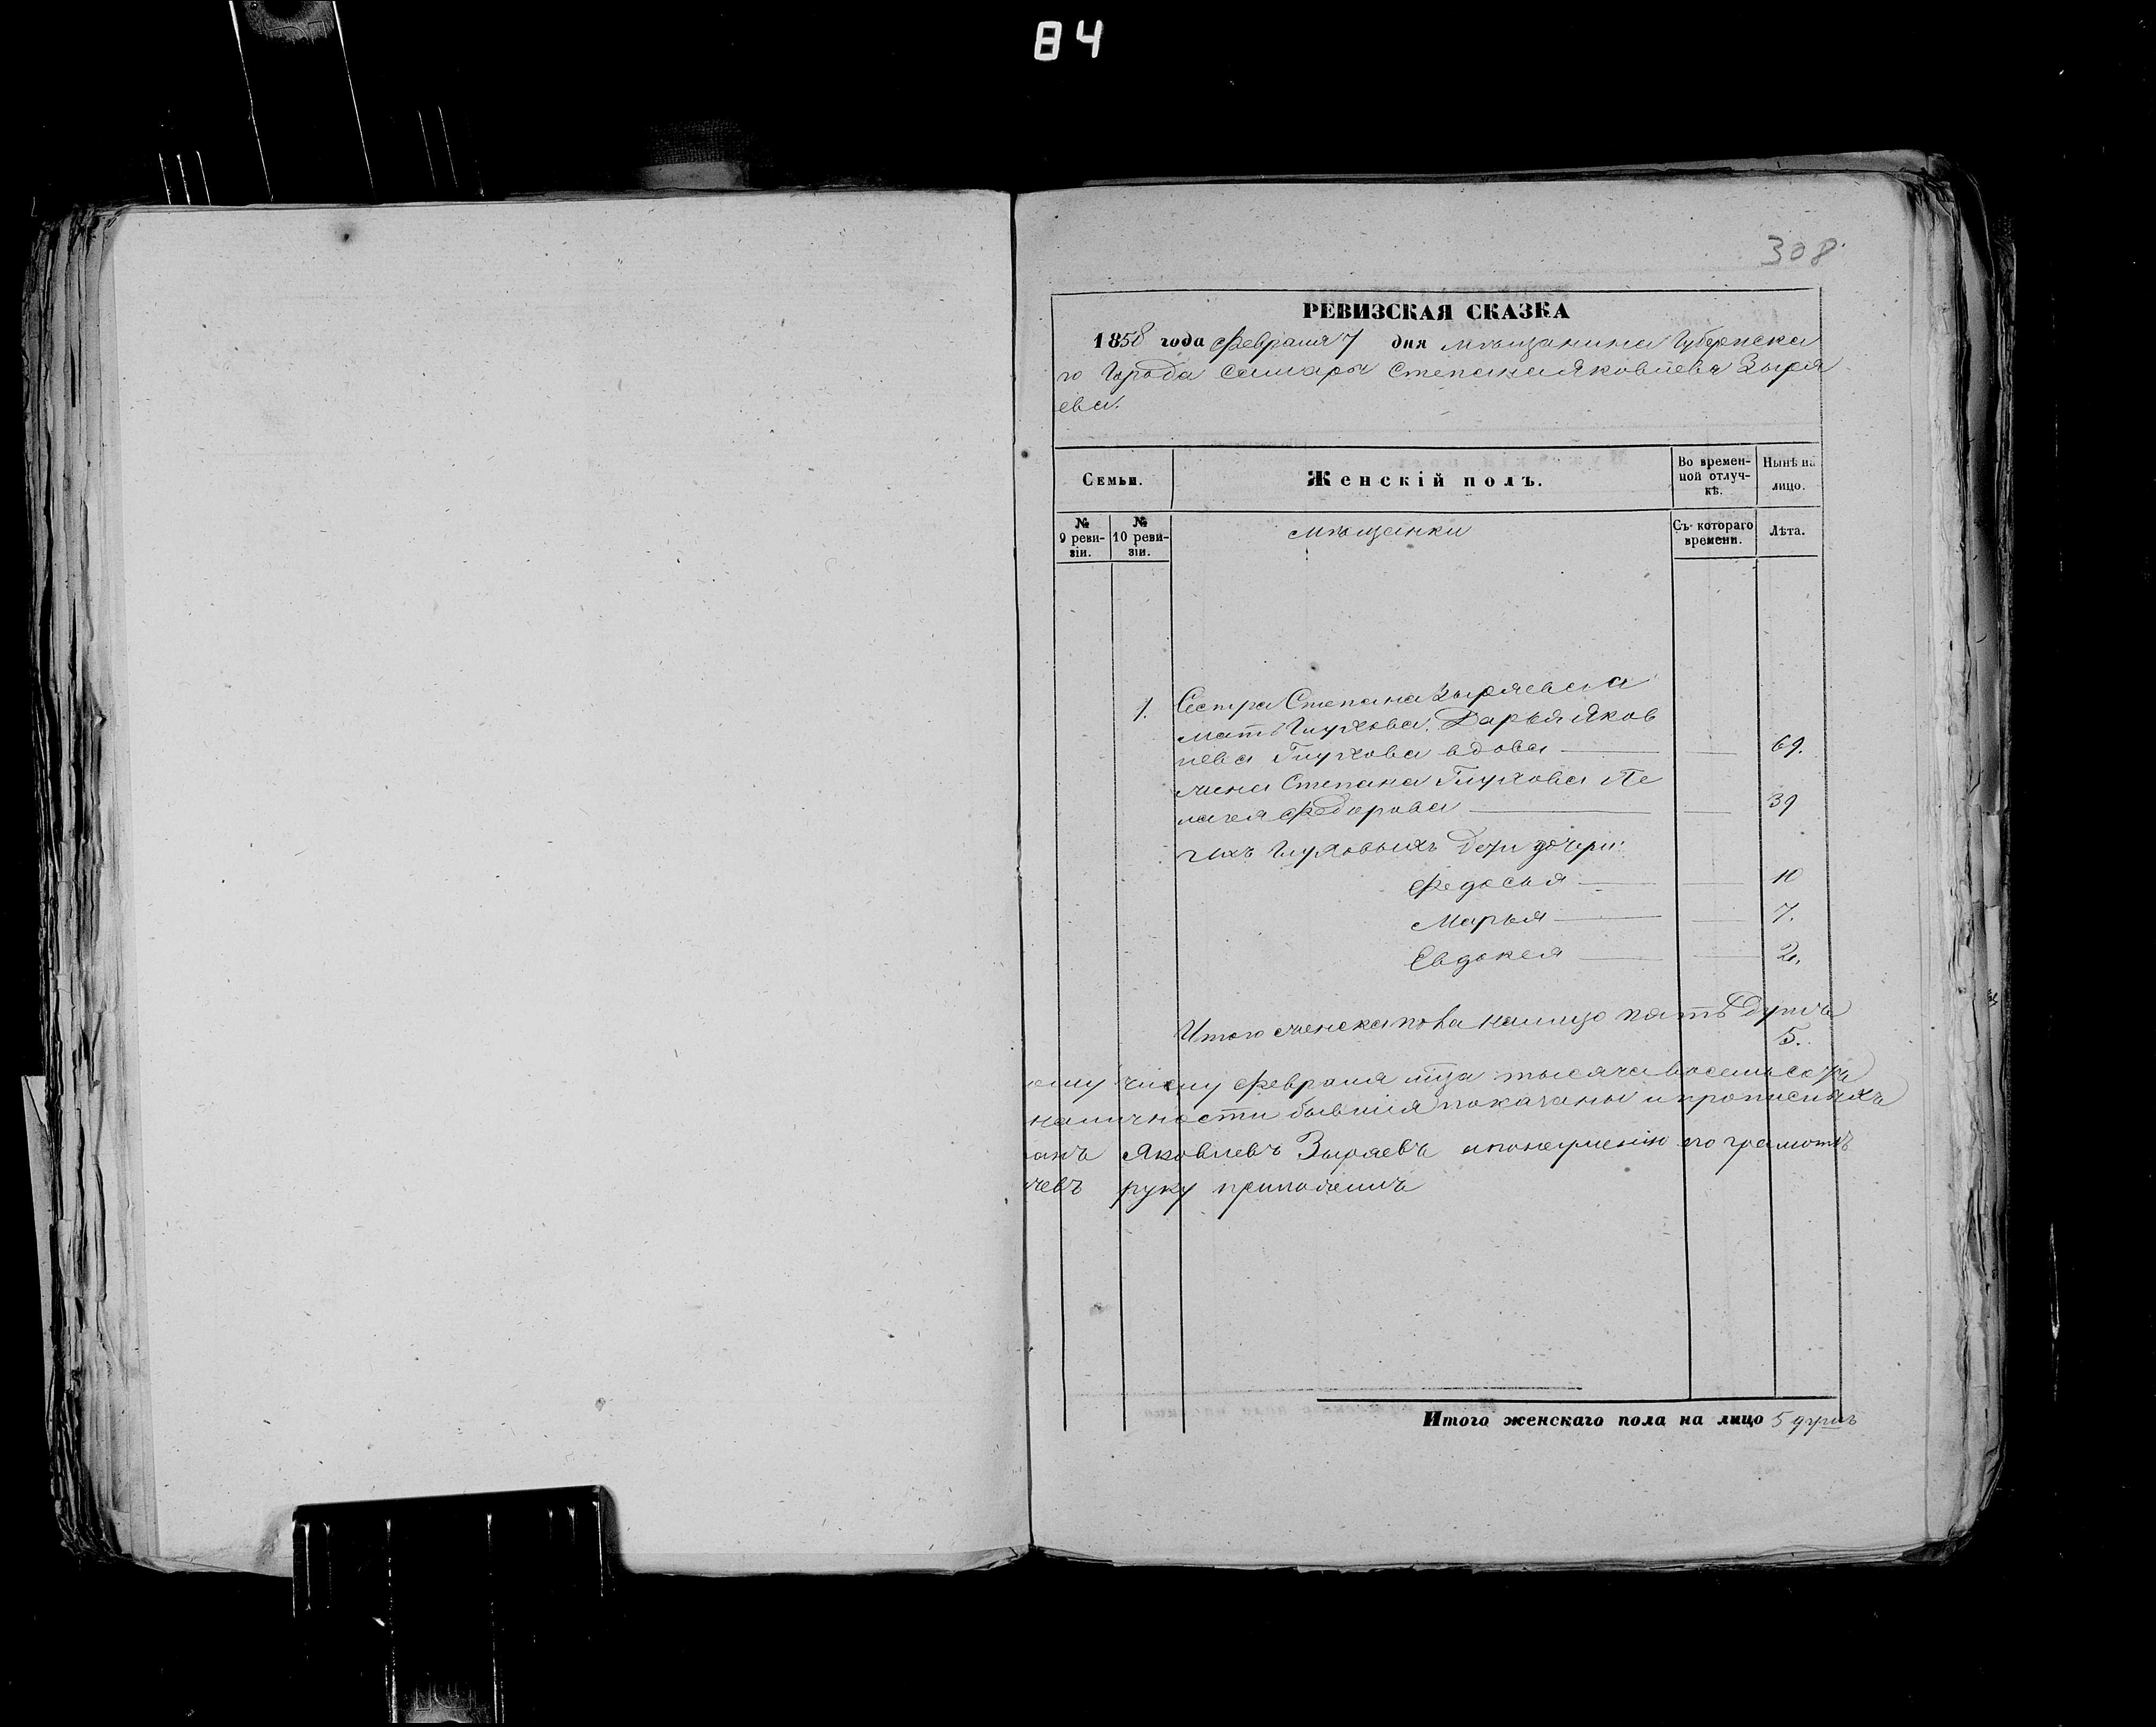 84
308
РЕВИЗСКАЯ СКАЗКА
1858 года Февраля 7 дня мѣщанина Губернска
го Города Самары Степана Яковлева Зыря
ева.
Семьи.
Женскій полъ.
Во времен-
ной отлуч-
кѣ.
Нынѣ на
лицо.
№
9 реви-
зіи.
№
10 реви-
зіи.
мѣщанки
Съ котораго
времени.
Лѣта.
1. Сестра Степана Зыряева а
мать Глухова, Дарья Яков
лева Глухова вдова 69.
жена Степана Глухова Пе
лагея Федорова 39
Ихъ Глуховыхъ дети дочери:
Федосья 10
Марья 7.
Евдокея 2.
Итого женска пола налицо пять Душъ
5.
ому числу Февраля мца тысяча восемьсотъ
наличности бывшия показаны и прописныхъ
анъ Яковлевъ Зыряевъ а по неумению его грамотѣ
чевъ руку приложилъ
Итого женскаго пола на лицо 5 душъ